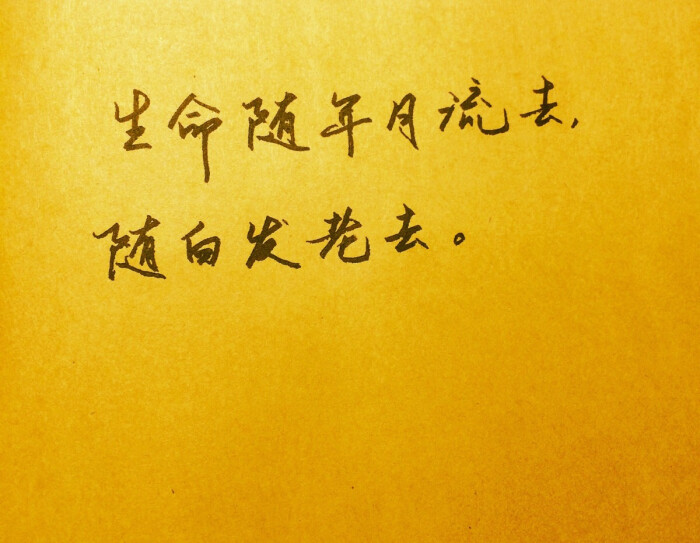 生命随年月流去,
随白发老去。